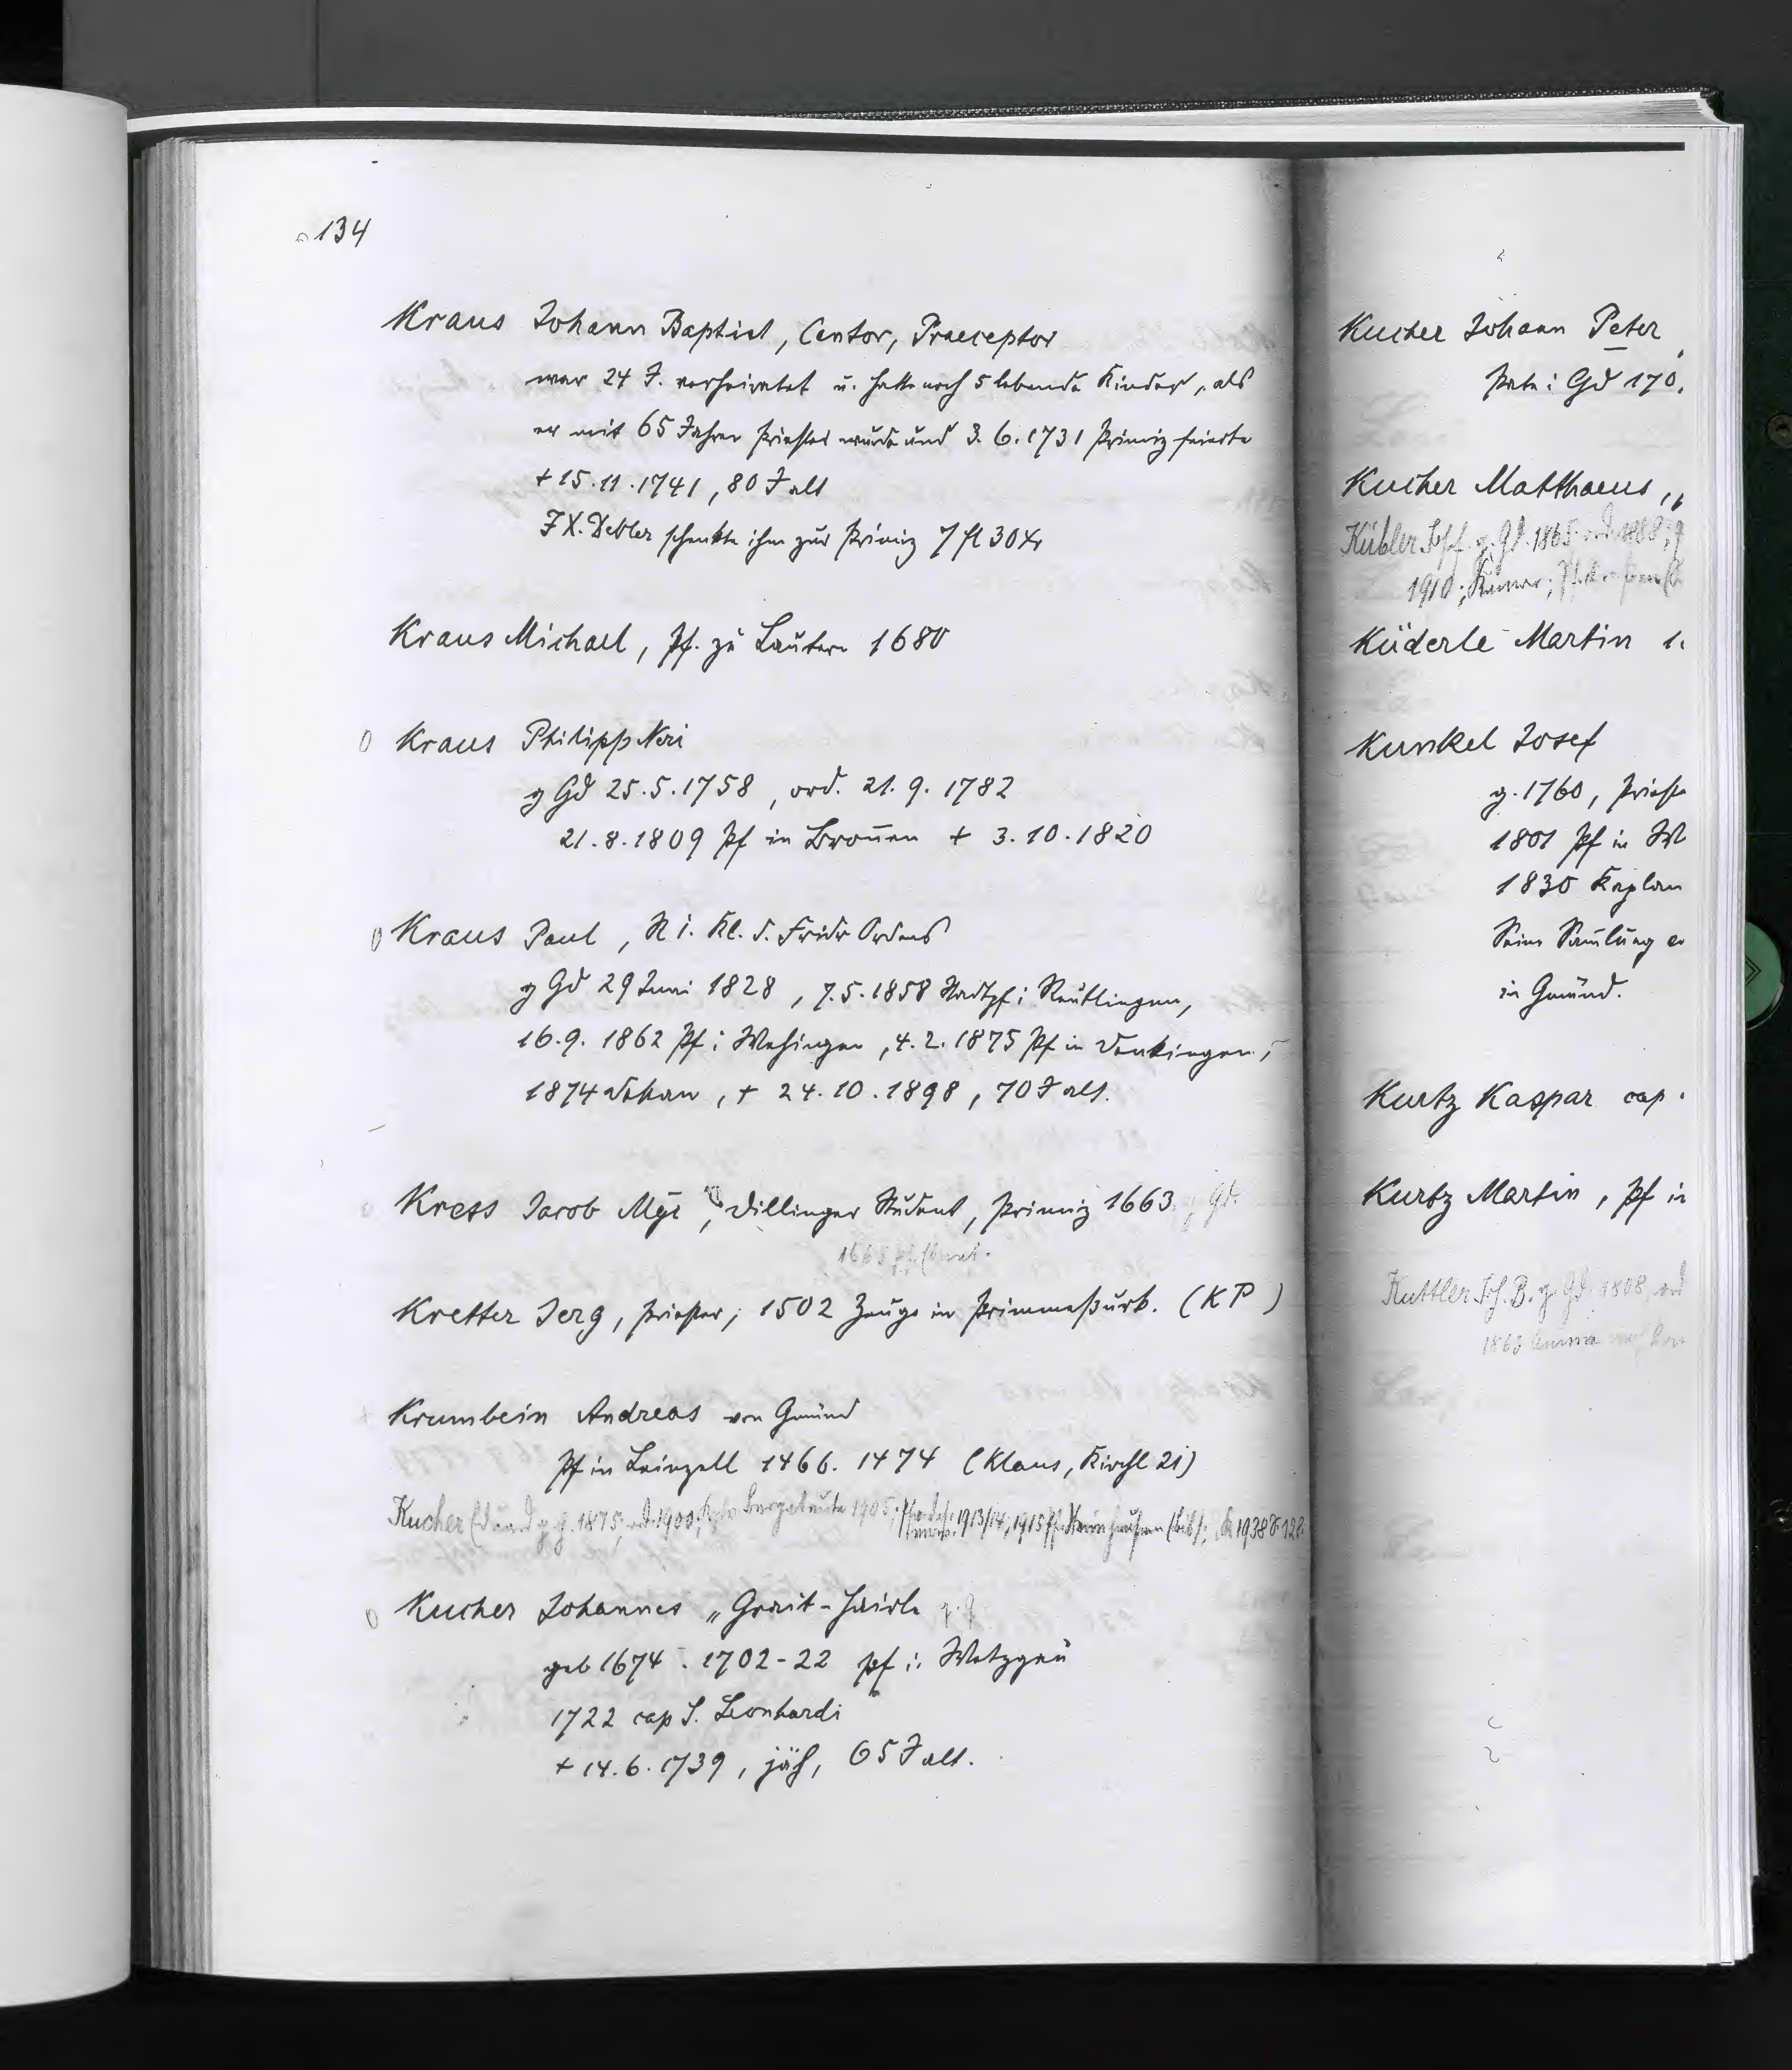 134
Kraus Johann Baptist, Cantor, Praeceptor
war 24 J. verheiratet u. hatte noch 5 lebende Kinder, als
er mit 65 Jahren Priester wurde und 3.6.1731 Primiz feierte
+ 15.11.1741, 80 J alt
F X. Debler schenkte ihm zur Primiz 7 fl 30 Xr
Kraus Michael, Pf. zu Lautern 1680
0 Kraus Philipp Neri
g Gd 25.5.1758, ord. 21.9.1782
21.8.1809 Pf in Broñen + 3.10.1820
0 Kraus Paul, R i. Kl. d. Fridr Ordens
g Gd 29 Juni 1828, 7.5.1858 Stadtpf i Reutlingen,
16.9.1862 Pf i Wehingen, 4.2.1875 Pf in Denkingen,
1874 Dekan, + 24.10.1898, 70 J alt.
Kress Jacob Mgr, Dillinger Student, Primiz 1663, g Gd.
1665 Pf.
Kretter Jerg, Priester, 1502 Zeuge in Priminmeßurk. (K P)
Krumbein Andreas von Gmünd
Pf in Leinzell 1466. 1474 (Klaus, Kirchl 21)
Kucher Eduard g. g. 1875, ord. 1900, 1905, 1913/14, 1915 Pf. 1938 S. 128
0 Kucher Johannes „Grait-Hairle g. g.
geb 1674. 1702-22 Pf i. Wetzgau
1722 cap S. Leonhardi
+ 14.6.1739, jäh, 65 J alt.
Kucher Johann Peter,
Pate: Gd 170
Kucher Matthaeus, „
Kübler Jos. g. Gd. 1865 ord. 1888;
1910;
Küderle Martin 1
Kunkel Josef
g. 1760, Prieste
1801 Pf in W
1830 Kaplan
Seine Sam̄lung
in Gmünd.
Kurtz Kaspar cap.
Kurtz Martin, Pf in
Kuttler Joh. B. g. Gd. 1808, ord
1863